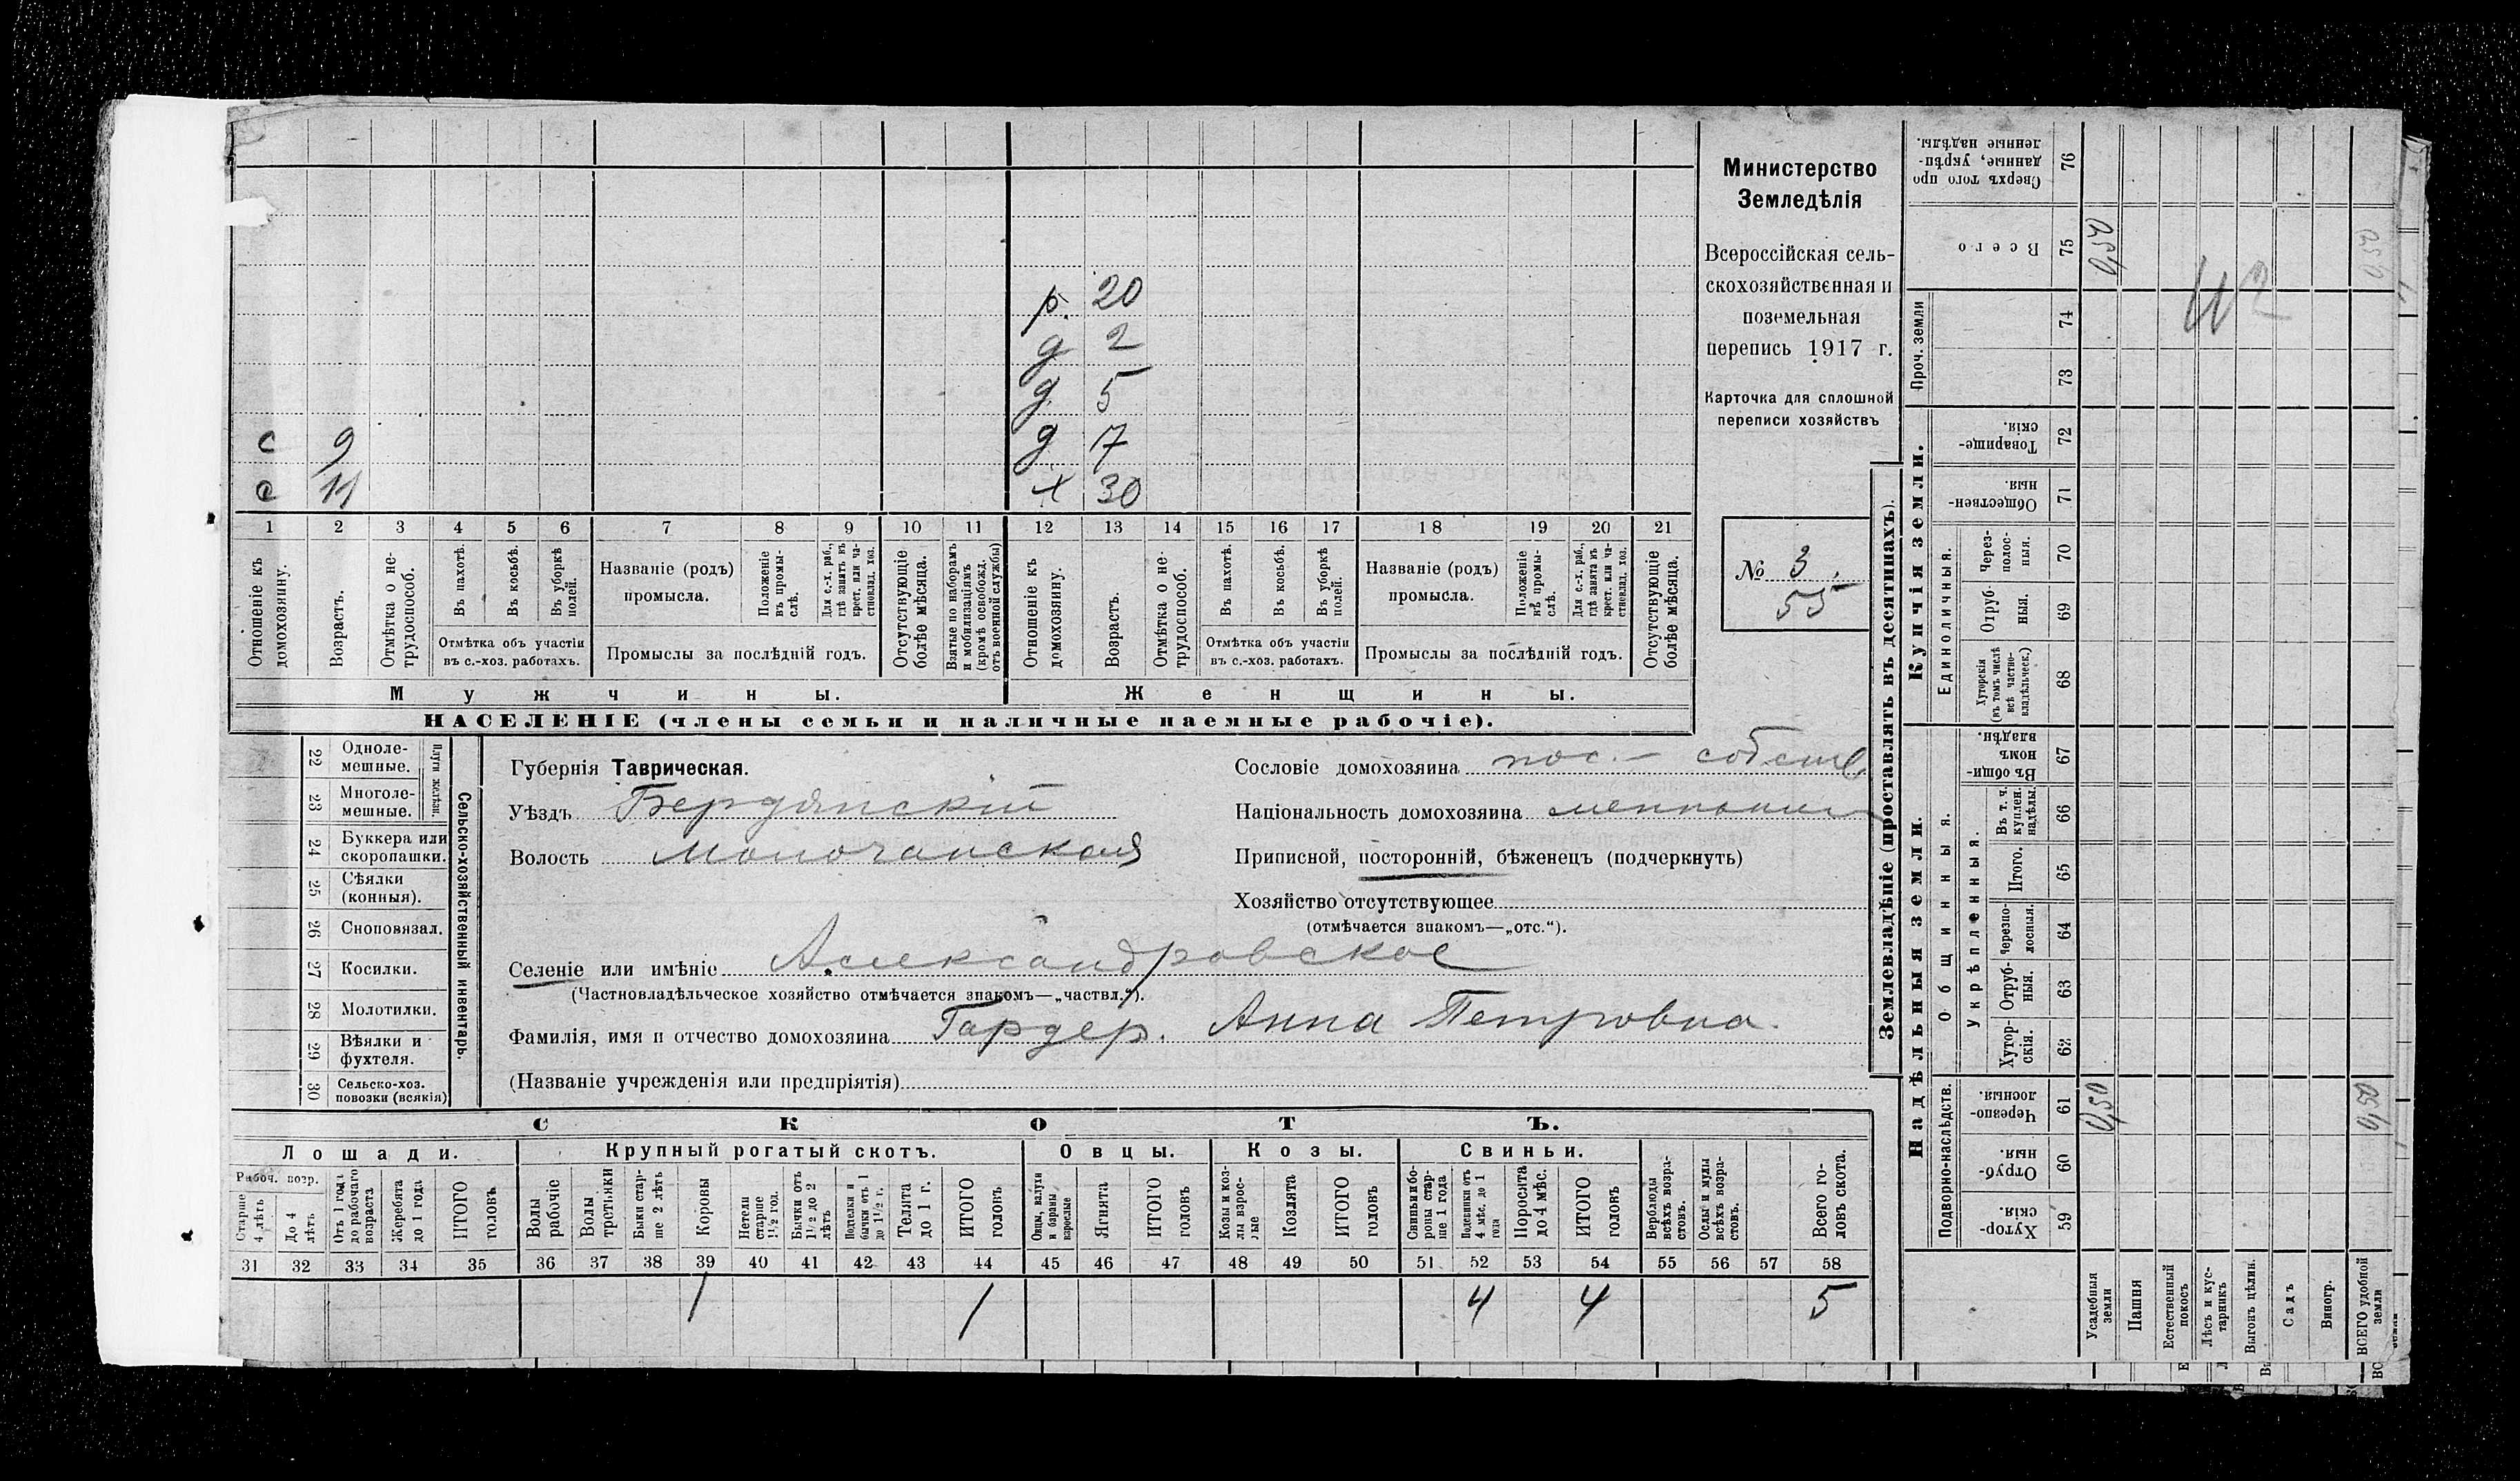 р. 20
д 2
д 5
с 9 д 7
с 11 х 30
1 2 3 4 5 6 7 8 9 10 11 12 13 14 15 16 17 18 19 20 21
Отношеніе къ домохозяину.
Возрастъ.
Отмѣтка о не-
трудоспособ.
Въ пахотѣ.
Въ косьбѣ.
Въ уборкѣ полей.
Отмѣтка объ участіи
въ с.-хоз. работахъ.
Названіе (родъ)
промысла.
Положеніе въ промы-
слѣ.
Для с.-х. раб., гдѣ занятъ въ крест. или ча-
стновлад. хоз.
Промыслы за послѣдній годъ.
Отсутствующіе болѣе мѣсяца.
Взятые по наборамъ и мобилизаціямъ (кромѣ освобожд. отъ военной службы)
Отношеніе къ домохозяину.
Возрастъ.
Отмѣтка о не-
трудоспособ.
Въ пахотѣ.
Въ косьбѣ.
Въ уборкѣ полей.
Отмѣтка объ участіи
въ с.-хоз. работахъ.
Названіе (родъ)
промысла.
Положеніе въ промы-
слѣ.
Для с.-х. раб., гдѣ занята въ крест. или ча-
стновлад. хоз.
Промыслы за послѣдній годъ.
Отсутствующіе болѣе мѣсяца.
Мужчины. Женщины.
НАСЕЛЕНІЕ (члены семьи и наличные наемные рабочіе).
Министерство
Земледѣлія
Всероссійская сель-
скохозяйственная и
поземельная
перепись 1917 г.
Карточка для сплошной
переписи хозяйствъ
№ 3.
55
22 Одноле-
мешные.
23 Многоле-
мешные.
24 Буккера или
скоропашки.
25 Сѣялки
(конныя).
26 Сноповязал.
27 Косилки.
28 Молотилки.
29 Вѣялки и
фухтеля.
30 Сельско-хоз.
повозки (всякія)
Сельско-хозяйственный инвентарь.
Губернія Таврическая.
Уѣздъ Бердянскій
Волость Молочанская
Селеніе или имѣніе Александровское
(Частновладѣльческое хозяйство отмѣчается знакомъ—„частвл.“).
Фамилія, имя и отчество домохозяина Гардер. Анна Петровна.
(Названіе учрежденія или предпріятія)
Сословіе домохозяина пос.- собств
Національность домохозяина
Приписной, посторонній, бѣженецъ (подчеркнуть)
Хозяйство отсутствующее
(отмѣчается знакомъ—„отс.“).
СКОТЪ.
Лошади. Крупный рогатый скотъ. Овцы. Козы. Свиньи.
Рабоч. возр.
Старше 4 лѣтъ
До 4 лѣтъ
Отъ 1 года до рабочаго возраста
Жеребята до 1 года
ИТОГО головъ
Волы рабочіе
Волы третьяки
Быки стар-
ше 2 лѣтъ
Коровы
Нетели старше 1 1/2 год.
Бычки отъ 1 1/2 до 2 лѣтъ
Подтелки и бычки отъ 1 до 1 1/2 г.
Телята до 1 г.
ИТОГО головъ
Овцы, валухи и бараны взрослые
Ягнята
ИТОГО головъ
Козы и коз-
лы взрос-
лые
Козлята
ИТОГО головъ
Свиньи и бо-
ровы стар-
ше 1 года
Подсвинки отъ 4 мѣс. до 1 года
Поросята до 4 мѣс.
ИТОГО головъ
Верблюды всѣхъ возра-
стовъ.
Ослы и мулы всѣхъ возра-
стовъ.
Всего го-
ловъ скота.
31 32 33 34 35 36 37 38 39 40 41 42 43 44 45 46 47 48 49 50 51 52 53 54 55 56 57 58
1 1 4 4 5
Землевладѣніе (проставлять въ десятинахъ).
Купчія земли.
Надѣльныя земли.
Сверхъ того про
данные, укрѣп-
ленные надѣлы.
76
Всего
75 0,50 0,50
Проч. земли
74
73
Товарище-
скія.
72
Обществен-
ныя.
71
Единоличныя.
Через-
полос-
ныя.
70
Отруб-
ныя.
69
Хуторскія
(въ томъ числѣ
всѣ частно-
владѣльческ.)
68
Общинныя.
Въ общи-
номъ
владѣн.
67
Укрѣпленныя.
Въ т. ч.
куплен.
надѣлы.
66
Итого.
65
Черезпо-
лосныя.
64
Отруб-
ныя.
63
Хутор-
скія.
62
Подворно-наслѣдств.
Черезпо-
лосныя.
61 0,50 0,50
Отруб-
ныя.
60
Хутор-
скія.
59
Усадебныя земли
Пашня
Естественный покосъ
Лѣсъ и кус-
тарникъ
Выгонъ цѣлин.
Садъ
Виногр.
ВСЕГО удобной земли